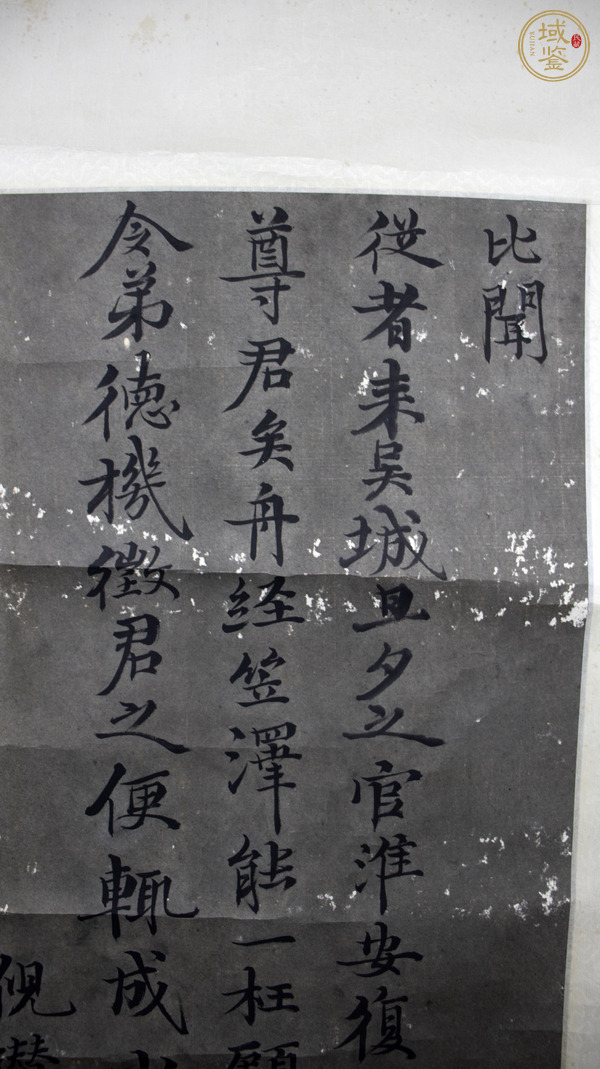 比聞
從者来吴城旦夕之官淮安復
尊君矣舟経笠澤能一枉顧
令弟德機徵君之便輒成
倪瓚
域鉴
YUJIAN